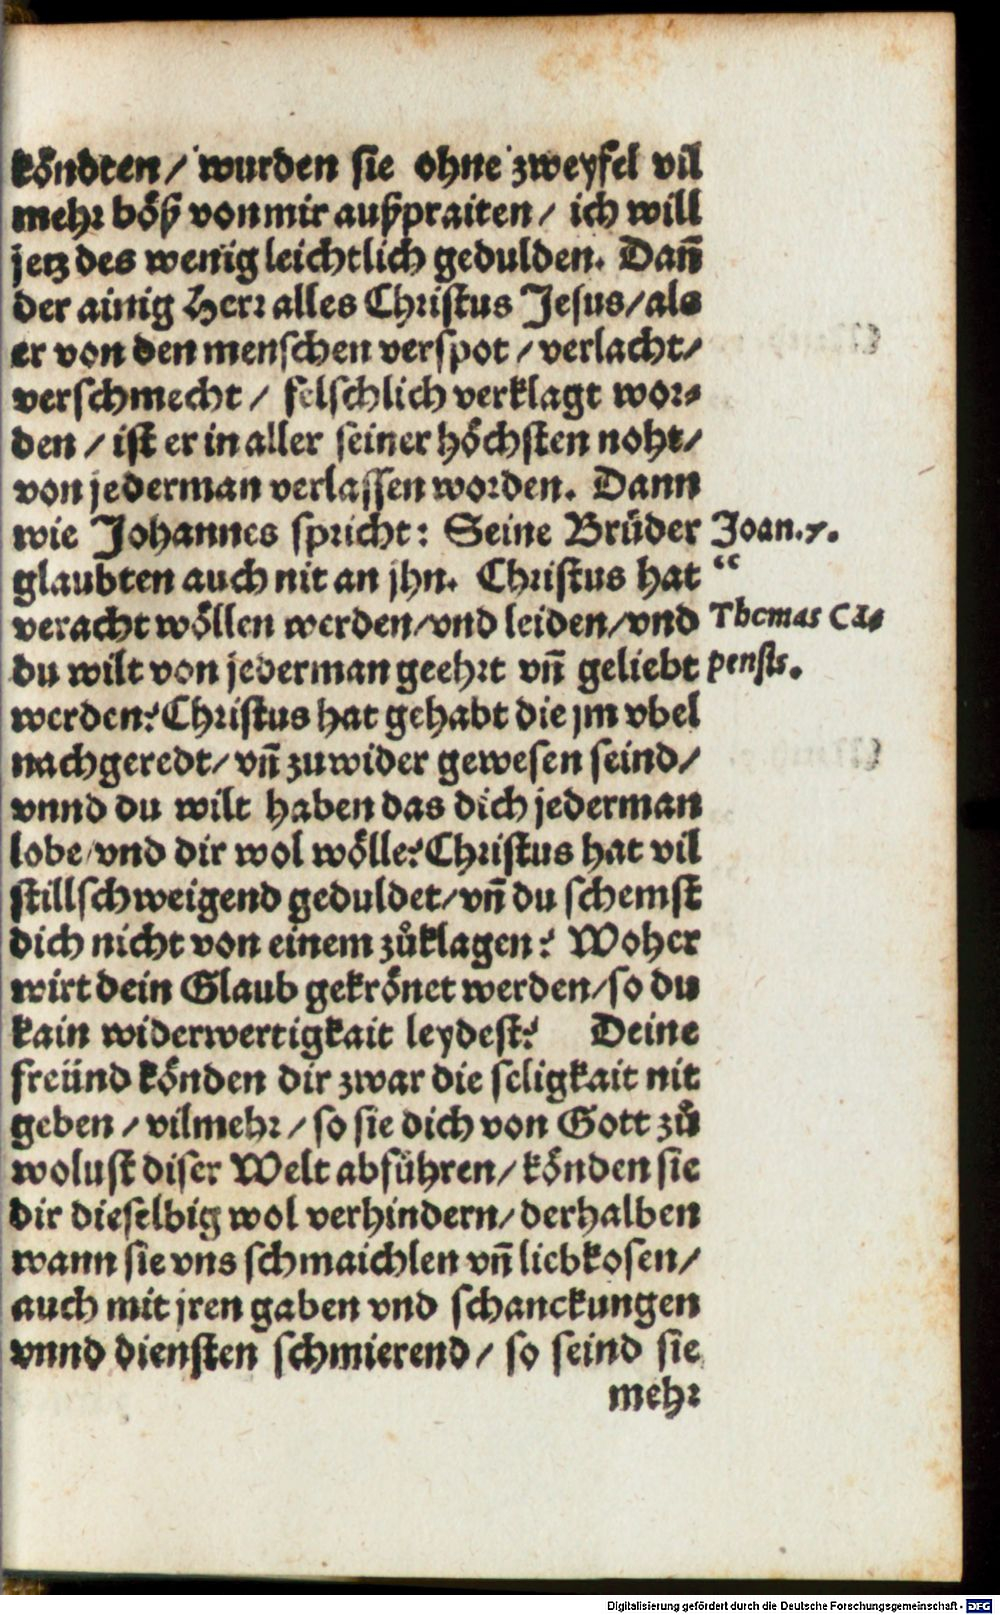 köndten / wurden sie ohne zweyfel vil
mehr böß von mir außpraiten / ich will
jetz des wenig leichtlich gedulden. Dañ
der ainig Herr alles Christus Jesus / als
er von den menschen verspot / verlacht /
verschmecht / felschlich verklagt wor⸗
den / ist er in aller seiner höchsten noht /
von jederman verlassen worden. Dann
wie Johannes spricht: Seine Brüder Joan. 7.
glaubten auch nit an jhn. Christus hat “
veracht wöllen werden / vnd leiden / vnd Thomas Cã⸗
du wilt von jederman geehrt vñ geliebt pensis.
werden? Christus hat gehabt die jm vbel
nachgeredt / vñ zuwider gewesen seind /
vnnd du wilt haben das dich jederman
lobe / vnd dir wol wölle? Christus hat vil
stillschweigend geduldet / vñ du schemst
dich nicht von einem zůklagen? Woher
wirt dein Glaub gekrönet werden / so du
kain widerwertigkait leydest? Deine
freünd könden dir zwar die seligkait nit
geben / vilmehr / so sie dich von Gott zů
wolust diser Welt abführen / könden sie
dir dieselbig wol verhindern / derhalben
wann sie vns schmaichlen vñ liebkosen /
auch mit jren gaben vnd schanckungen
vnnd diensten schmierend / so seind sie
mehr
Digitalisierung gefördert durch die Deutsche Forschungsgemeinschaft - DFG